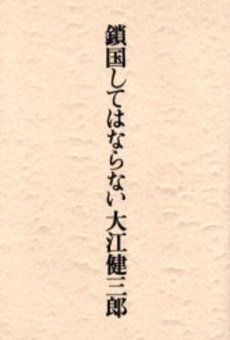 鎖国してはならない 大江健三郎